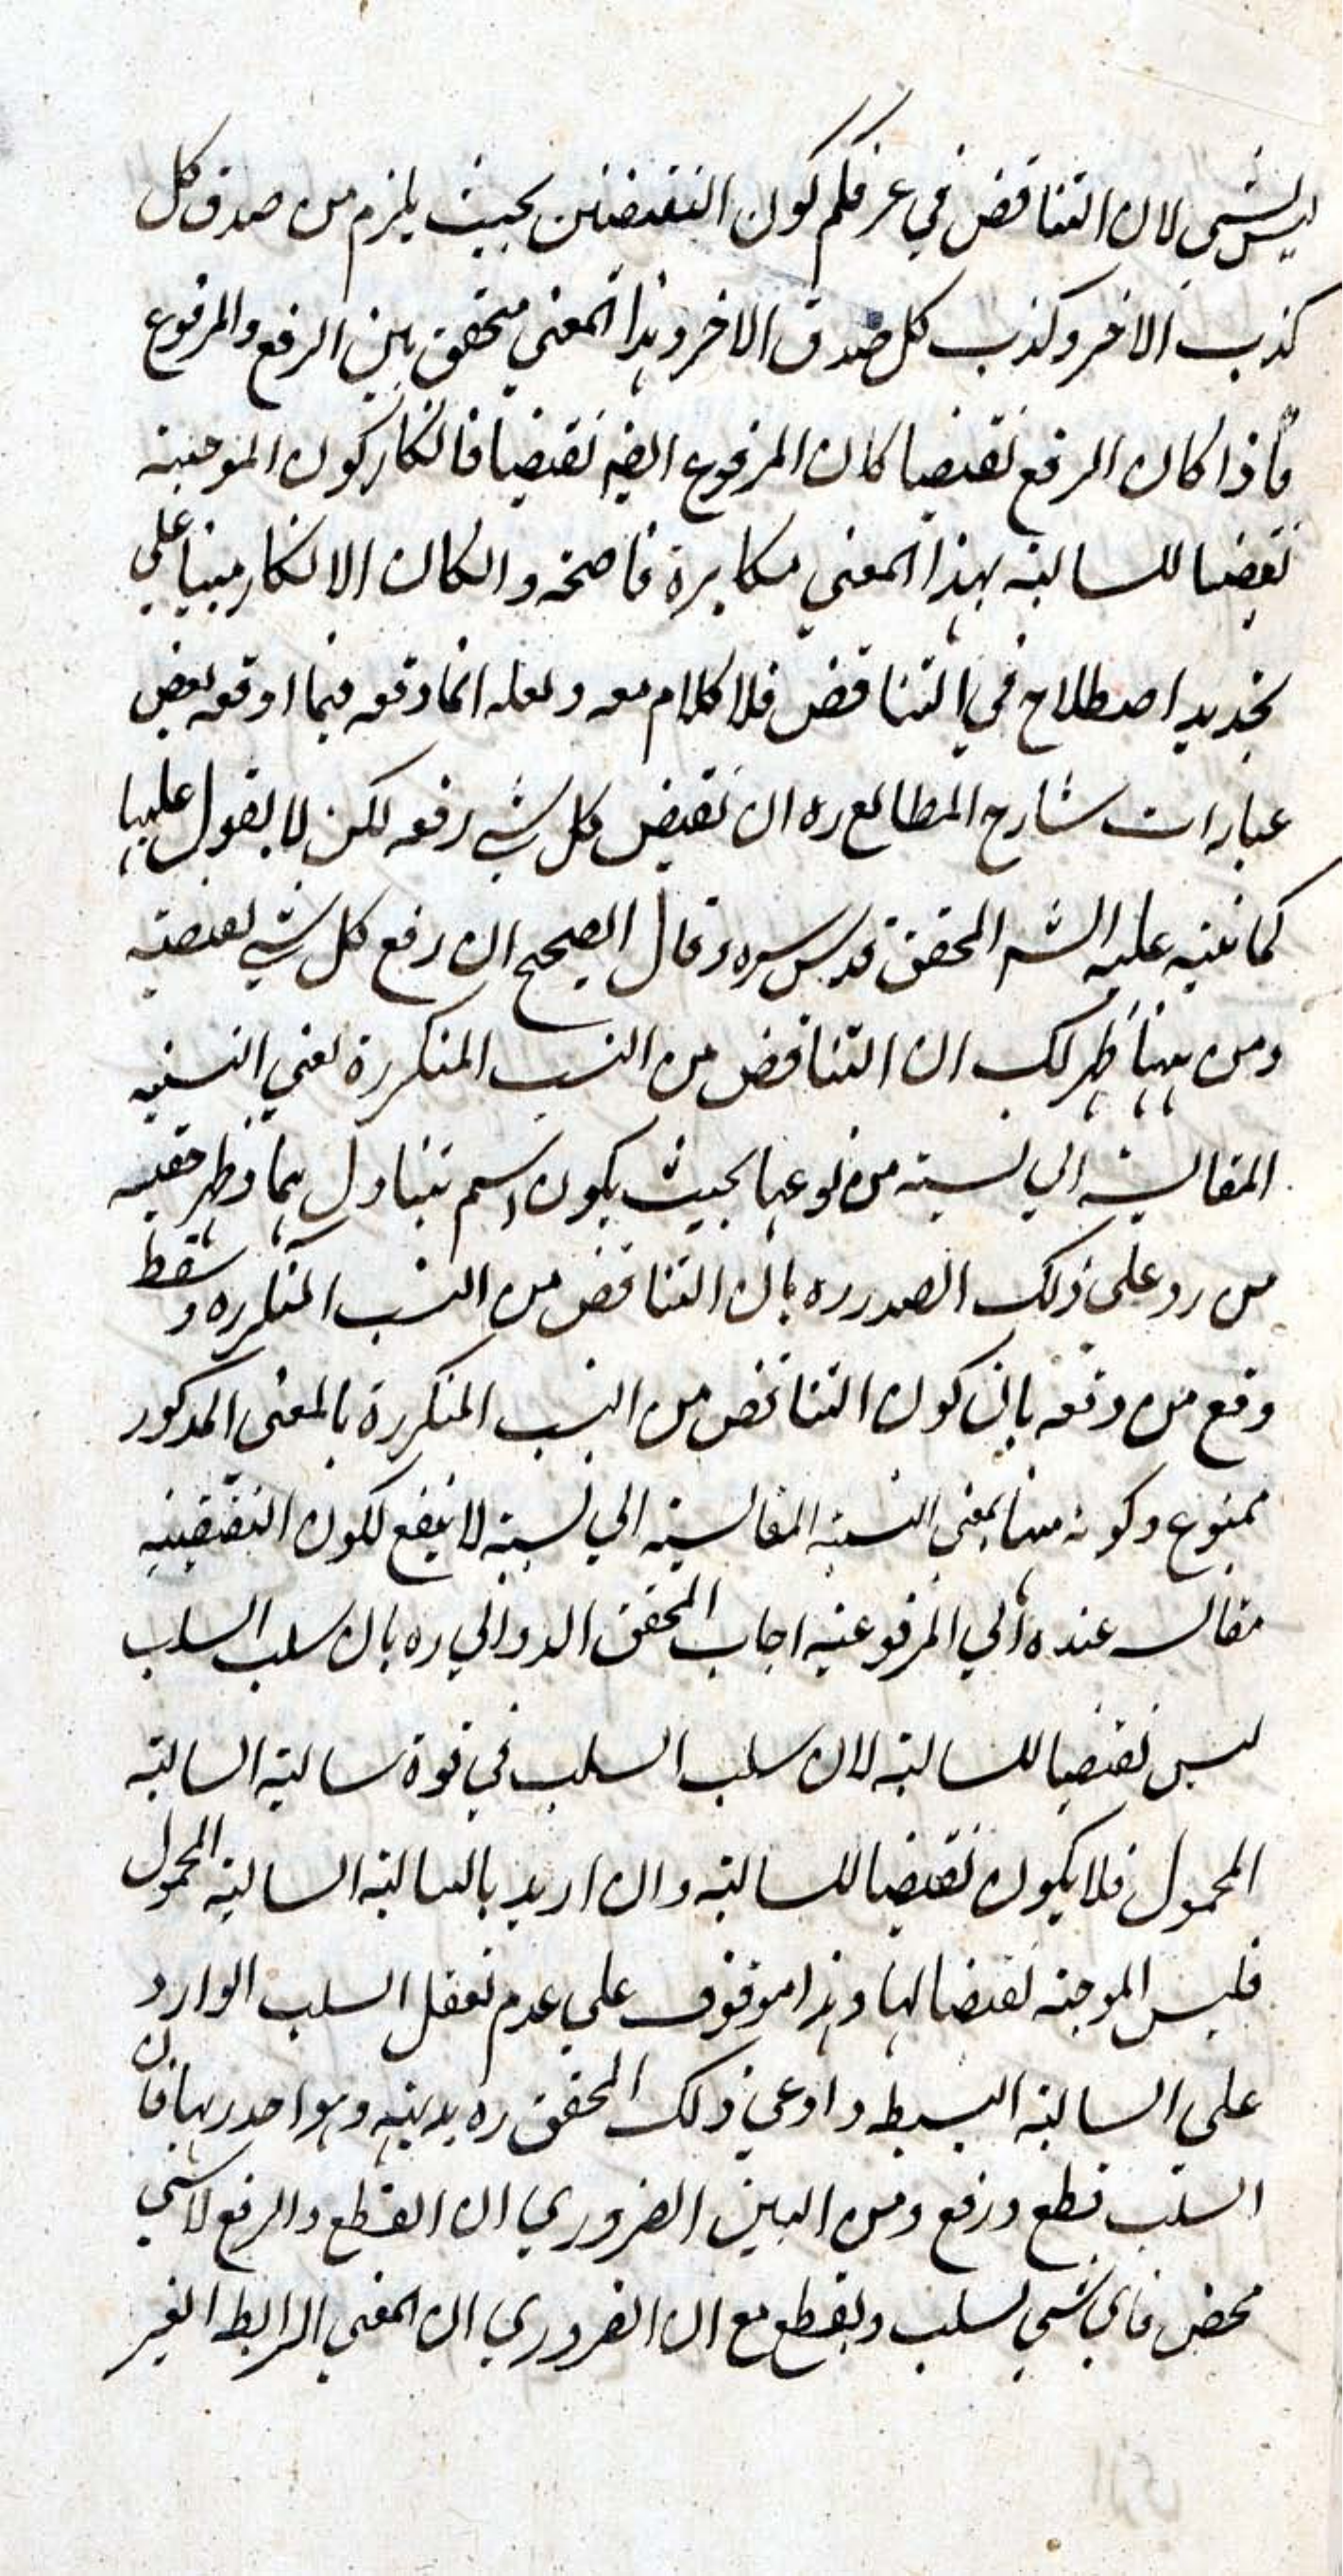 ليس بشي لان التناقض في عرفكم كون النقيضين بحيث يلزم من صدق كل
كذب الاخر وكذب كل صدق الاخر وهذا المعني متحقق بين الرفع والمرفوع
فاذا كان الرفع نقيضا كان المرفوع ايضه نقيضا فانكار كون الموجبة
نقيضا للسالبة بهذا المعني مكابرة فاضحة وانكان الانكار مبنيا علي
تجديد اصطلاح في التناقض فلا كلام معه ولعله انما وقعه فيما اوقعه بعض
عبارات شارح المطالع ره ان نقيض كل شي رفعه لكن لا يعول عليها
كما نبه عليه الشه المحقق قدس سره وقال الصحيح ان رفع كل شي نقيضه
ومن ههنا ظهر لك ان التناقض من النسب المتكررة يعني النسبة
المقالسة الي نسبة من نوعها بحيث يكون اسم يتناولهما وظهر حقية
من رد علي ذلك الصدر ره بان التناقض من النسب المتكرره وسقط
وقع من دفعه بان كون التناقض من النسب المتكررة بالمعنى المذكور
ممنوع وكونه منها بمعنى النسبة المقالسة الي نسبة لا ينفع لكون النقيضية
مقالسه عنده الي المرفوعية اجاب المحقق الدواني ره بان سلب السلب
ليس نقيضا للسالبة لان سلب السلب في قوة سالبة السالبة
المحمول فلا يكون نقيضا للسالبة وان اريد بالسالبة السالبة المحمول
فليس الموجبة نقيضا لها وهذا موقوف علي عدم تعقل السلب الوارد
علي السالبة البسيطه وادعي ذلك المحقق ره بديهة وهو اصدر بها فان
السلب قطع ورفع ومن البين الضروري ان القطع والرفع لا شي
محض فاي شي يسلب ويقطع مع ان الضروري ان المعني الرابط الغير